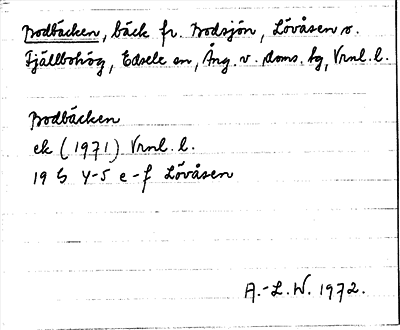 Bodbäcken, bäck fr. Bodsjön, Lövåsen o.
Fjällbohög, Edsele sn, Ång. v. doms. hg, Vrnl. l.
Bodbäcken
ek (1971) Vrnl. l.
19 G 4-5 e-f Lövåsen
A.-L.W. 1972.